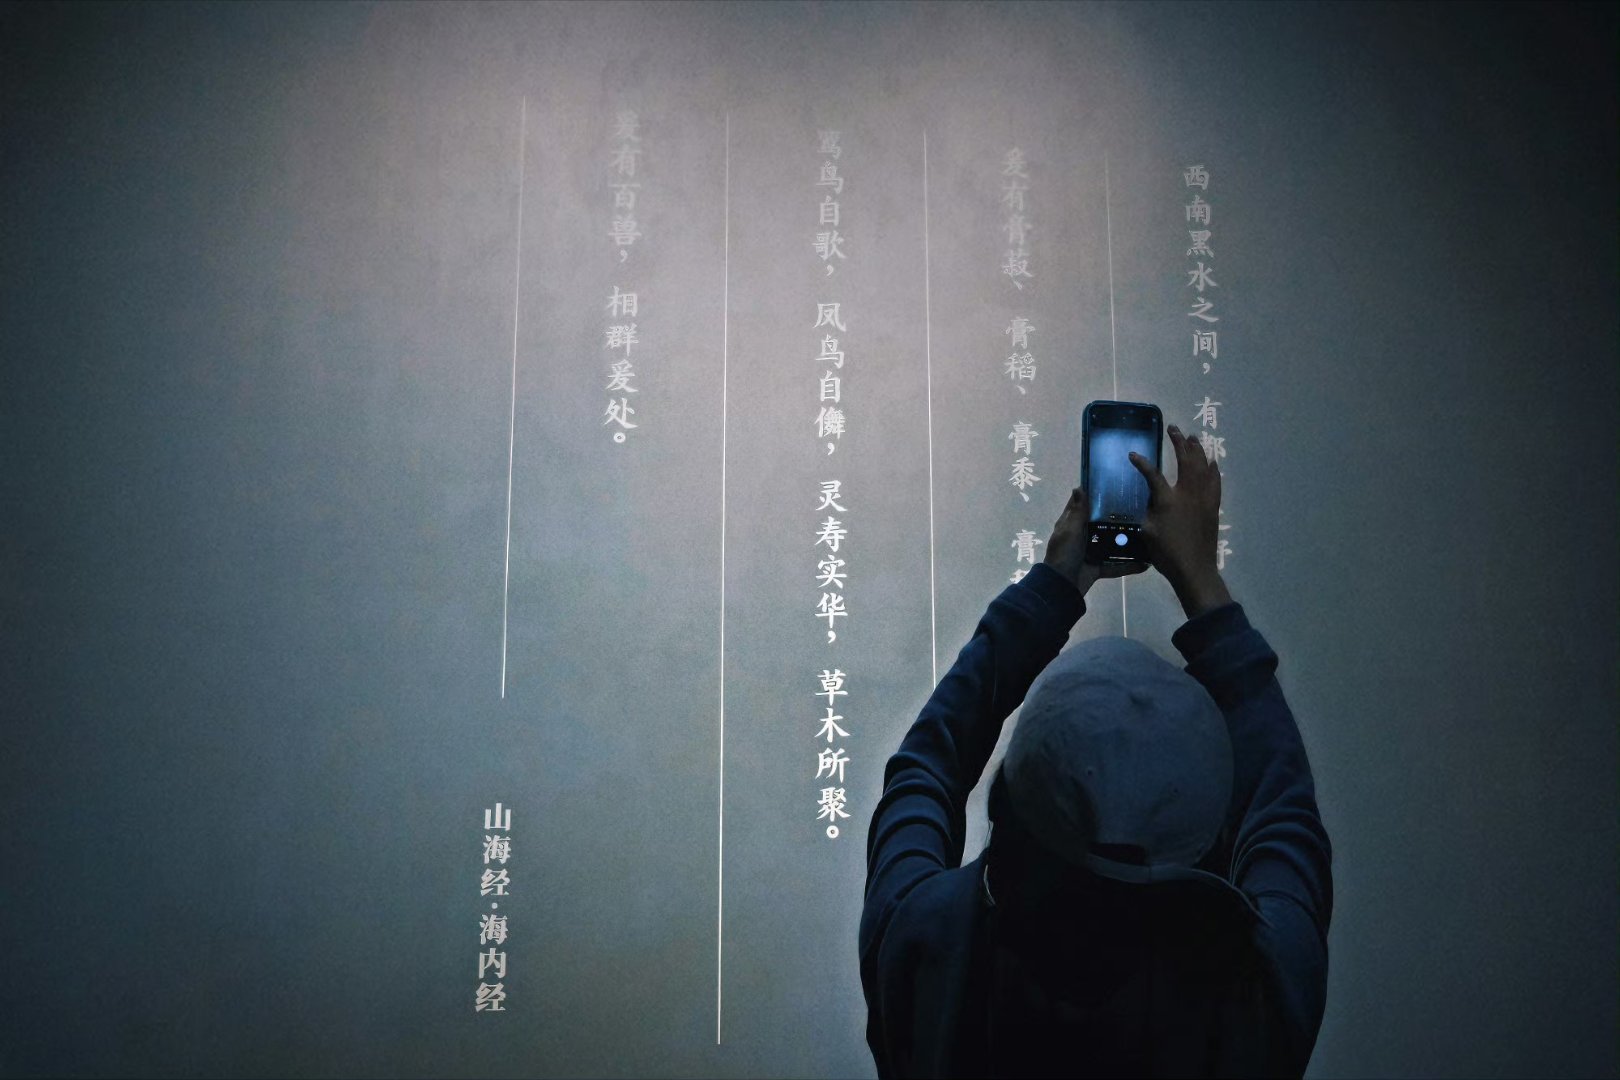 西南黑水之间，有都
爰有膏菽、膏稻、膏黍、膏
鸾鸟自歌，凤鸟自儛，灵寿实华，草木所聚。
爰有百兽，相群爰处。
山海经·海内经